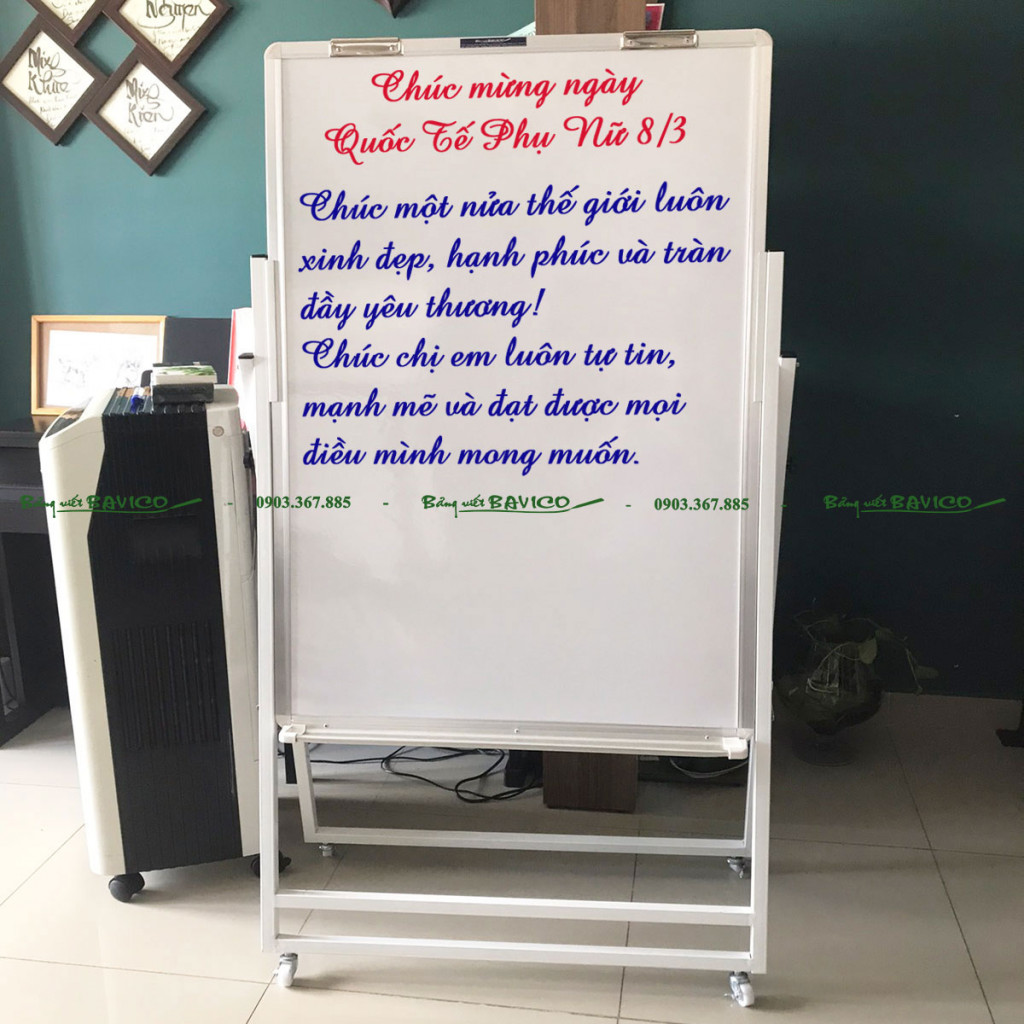 Nguyen
Minh
Khuê
Minh
Kiến
Chúc mừng ngày
Quốc Tế Phụ Nữ 8/3
Chúc một nửa thế giới luôn
xinh đẹp, hạnh phúc và tràn
đầy yêu thương!
Chúc chị em luôn tự tin,
mạnh mẽ và đạt được mọi
điều mình mong muốn.
Bảng viết BAVICO - 0903.367.885 - Bảng viết BAVICO - 0903.367.885 - Bảng viết BAVICO